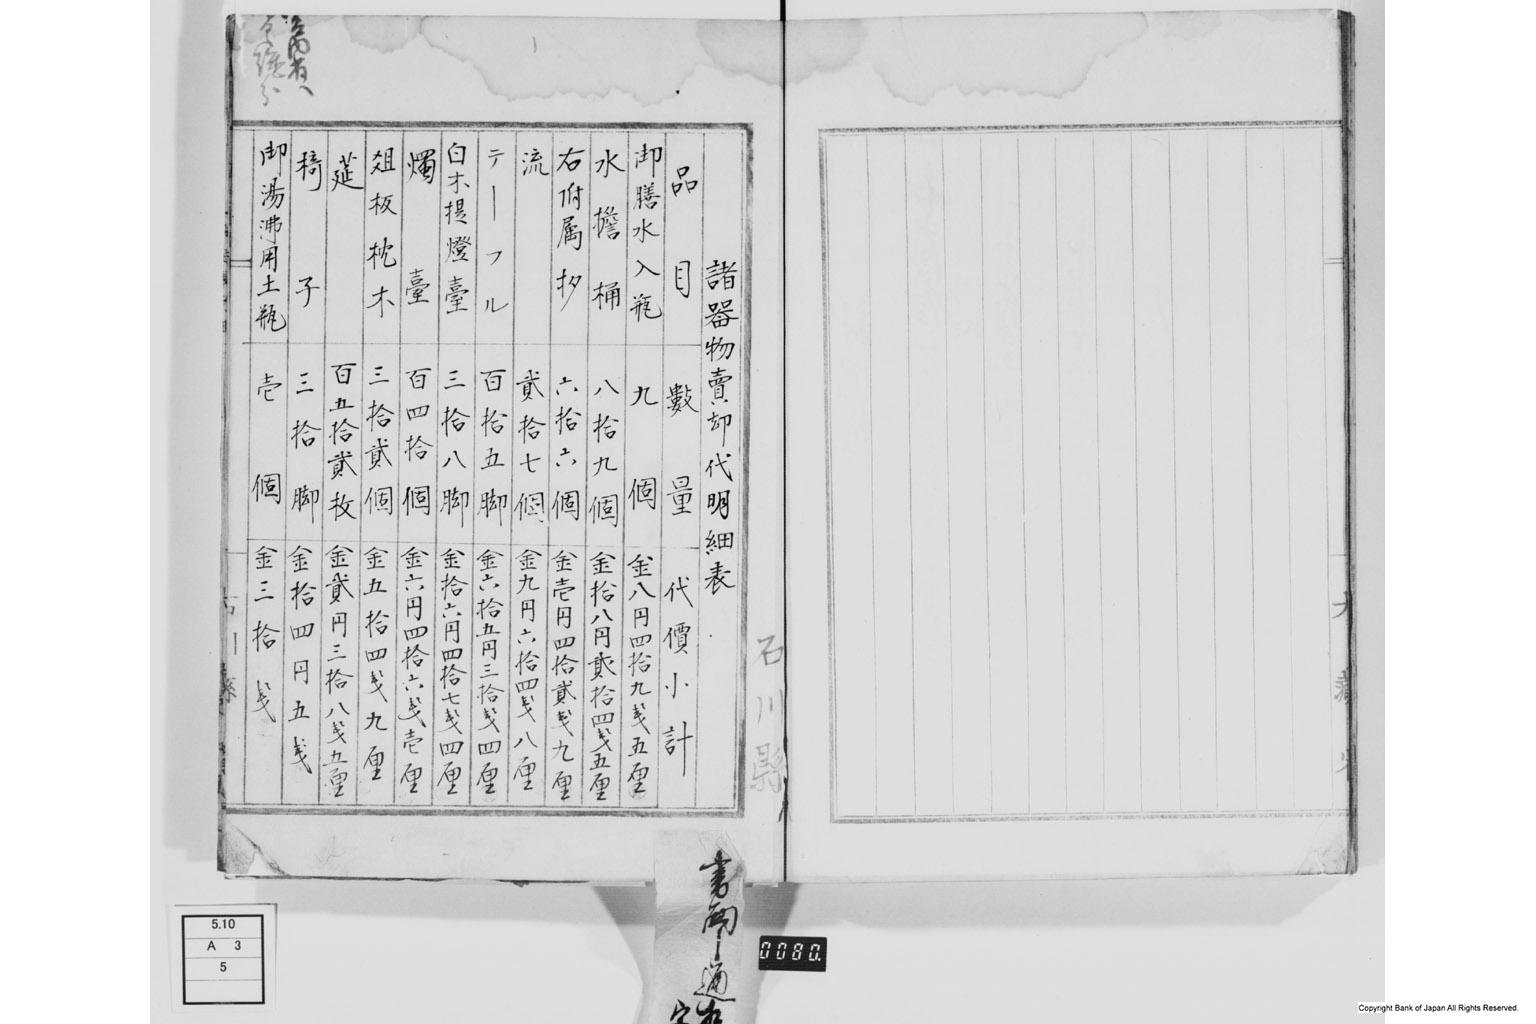 諸器物賣却代明細表
品目 數量 代價小計
御膳水入瓶 九個 金八円四拾九戋五厘
水擔桶 八拾九個 金拾八円貳拾四戋五厘
右附属杉 六拾六個 金壱円四拾貳戋九厘
流 貳拾七個 金九円六拾四戋八厘
テーフル 百拾五脚 金六拾五円三拾戋四厘
白木提燈臺 三拾八脚 金拾六円四拾七戋四厘
燭臺 百四拾個 金六円四拾六戋壱厘
俎板枕木 三拾貳個 金五拾四戋九厘
莚 百五拾貳枚 金貳円三拾八戋五厘
椅子 三拾脚 金拾四円五戋
御湯沸用土瓶 壱個 金三拾戋
石川縣
大藏省
5.10
A 3
5
0080.
Copyright Bank of Japan All Rights Reserved.